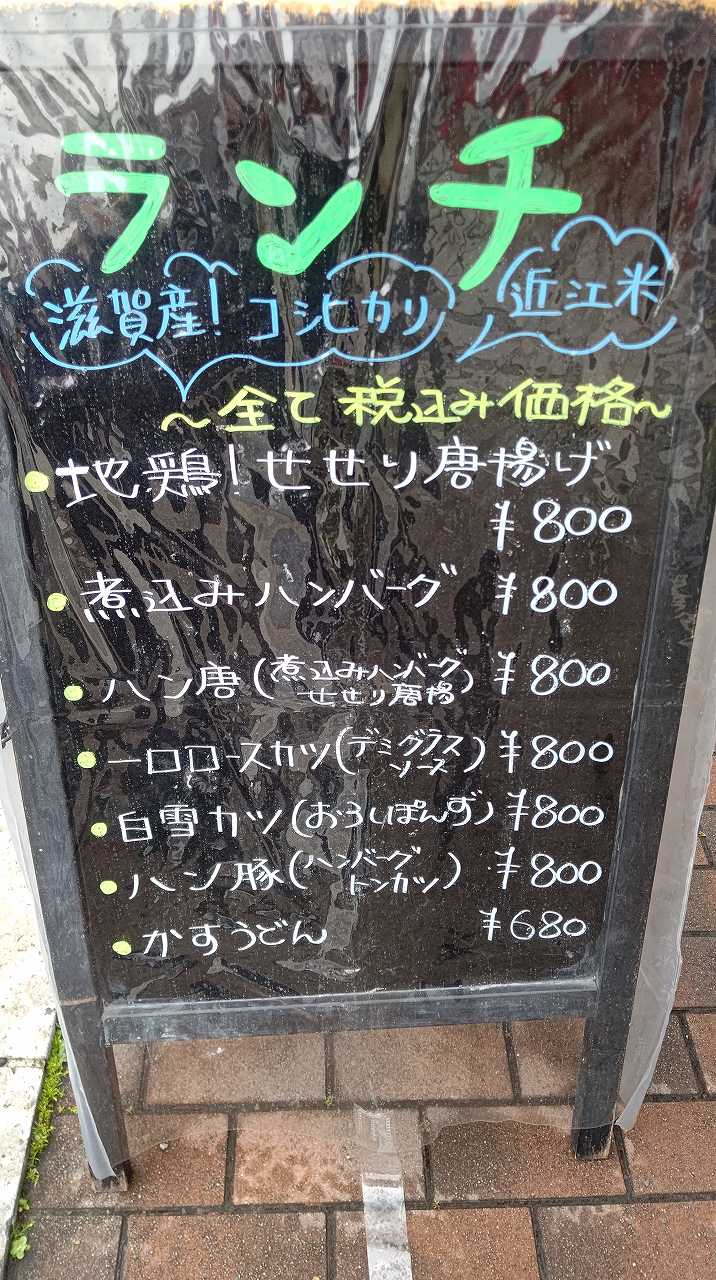 ランチ
滋賀産!コシヒカリ 近江米
～全て税込み価格～
地鶏!せせり唐揚げ
¥800
煮込みハンバーグ ¥800
ハン唐(煮込みハンバーグ
せせり唐揚) ¥800
一口ロースカツ(デミグラス
ソース) ¥800
白雪カツ(おろしぽんず) ¥800
ハン豚(ハンバーグ
トンカツ) ¥800
かすうどん ¥680